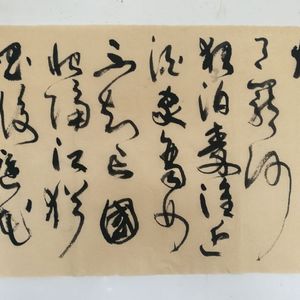 月籠沙
夜泊秦淮近
酒家商女
不知亡國
恨隔江猶
唱後庭花